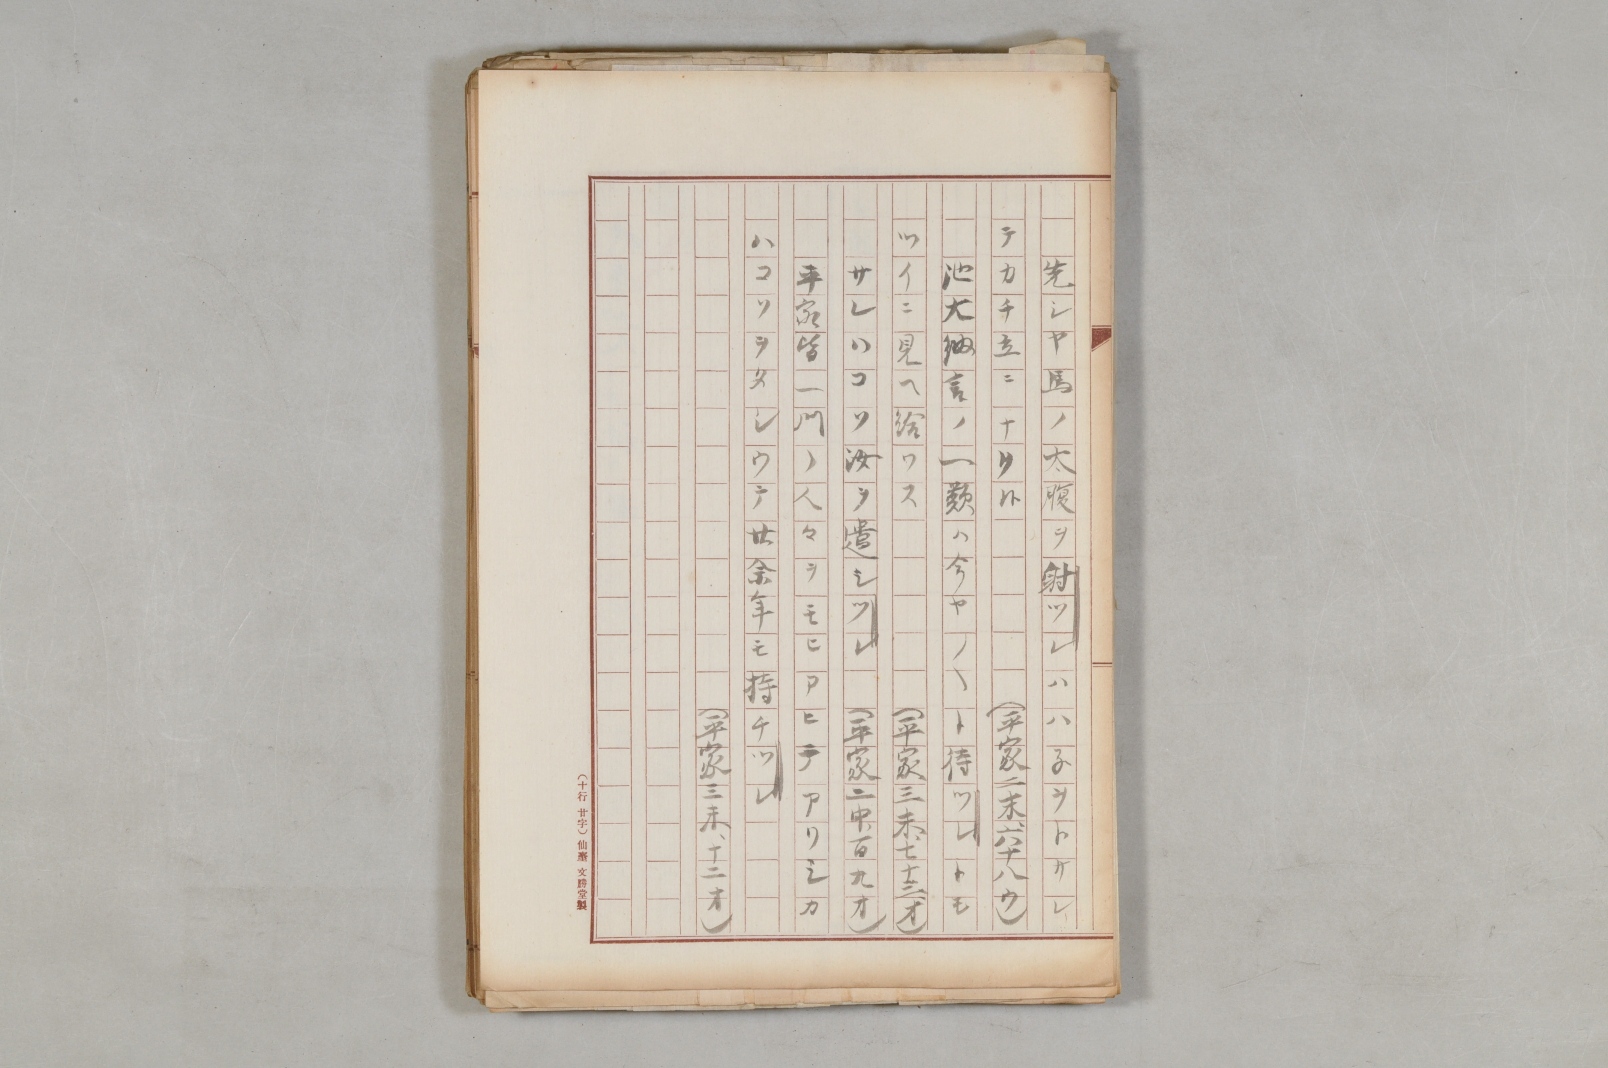 先シヤ馬ノ太腹ヲ射ツレハハ子ヲトサレ
テカチ立ニナリヌ
(平家二末、六十八ウ)
池大納言ノ一類ハ今ヤ〳〵ト待ツレトモ
ツイニ見ヘ給ワス
(平家三末、七十三オ)
サレハコソ汝ヲ遣シツレ
(平家二中、百九オ)
平家皆一門ノ人々ヲモヒアヒテアリシカ
ハコソヲタシウテ廿余年モ持チツレ
(平家三末、十二オ)
(十行 廿字) 仙臺 文勝堂製